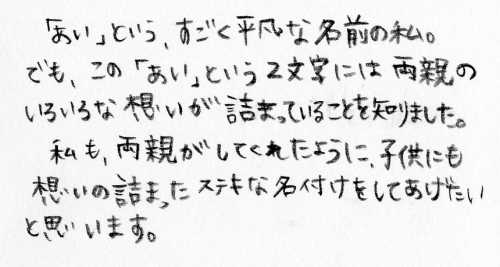 「あい」という、すごく平凡な名前の私。
でも、この「あい」という2文字には両親の
いろいろな想いが詰まっていることを知りました。
私も、両親がしてくれたように、子供にも
想いの詰まったステキな名付けをしてあげたい
と思います。